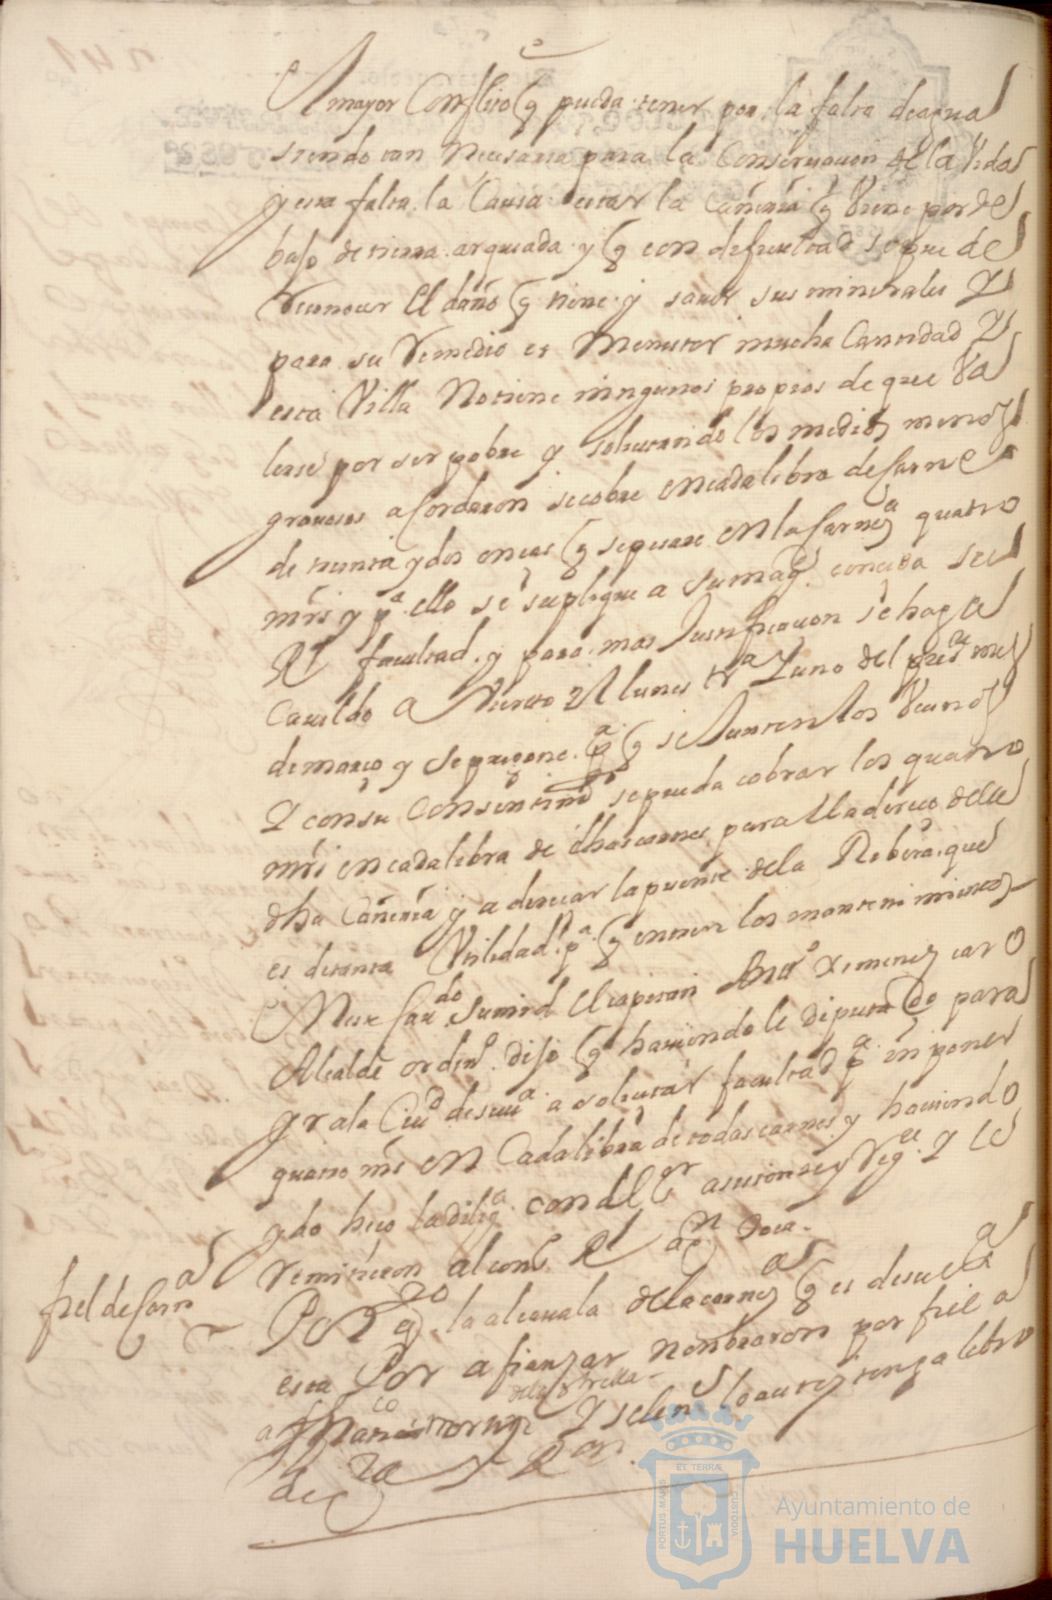 mayor Conflito q pueda tener por la falta de agua
siendo tan necesaria para la Conservacion de la Vida
y esta falta la Causa estar la Cañeria q Viene por de
bajo de tierra arqueada y q con dificultad se puede
Reconocer El daño q tiene y saver sus minerales Y
para su Remedio es Menester mucha Cantidad Y
esta Villa No tiene ningunos propios de que Va
lerse por ser pobre y solicitando los medios menos
gravosos acordaron se cobre en cada libra de Carne
de treinta y dos onças q se pesare en la Carneª quatro
mrs y pª ello se suplique a Su magᵈ conceda su
Rl facultad y para mas Justificacion se haga
Cavildo aVierto el lunes trª Y uno del presᵗᵉ mes
de março y se pregone pª q se Junten los Vecinos
Y con su Consentimᵗᵒ se pueda cobrar los quatro
mrs en cada libra de dhas carnes para el adereço de la
dha Cañeria y adereçar la puente de la Ribera que
es de tanta Vtilidad pª q entren los mantenimientos
En este Cavᵈᵒ Su mrd El capitan Antᵒ Ximenez caro
Alcalde ordinᵒ dijo q haviendole diputado para
yr a la Ciuᵈ de sevᵃ a solicitar facultad pª inponer
quatro mrs en Cada libra de todas carnes y haviendo
ydo hiço la diligª con el Sʳ asistente y Regᵗᵉ Y le
Remitieron al consᵒ Rl
fiel de Carnª
Por qᵗᵒ la alcavala de la carneª q es de
esta Por afianzar nonbraron por fiel a
de la estrella
a Matias Y se le noᵗ lo acete y tenga libro
de
PORTUS MARIS
ET TERRÆ
CUSTODIA
Ayuntamiento de
HUELVA